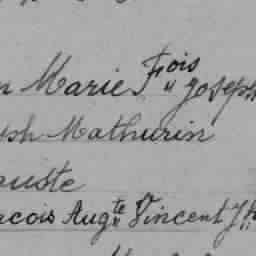 Marie Fois Joseph
Mathurin
guste
ncois Augte Vincent Jh